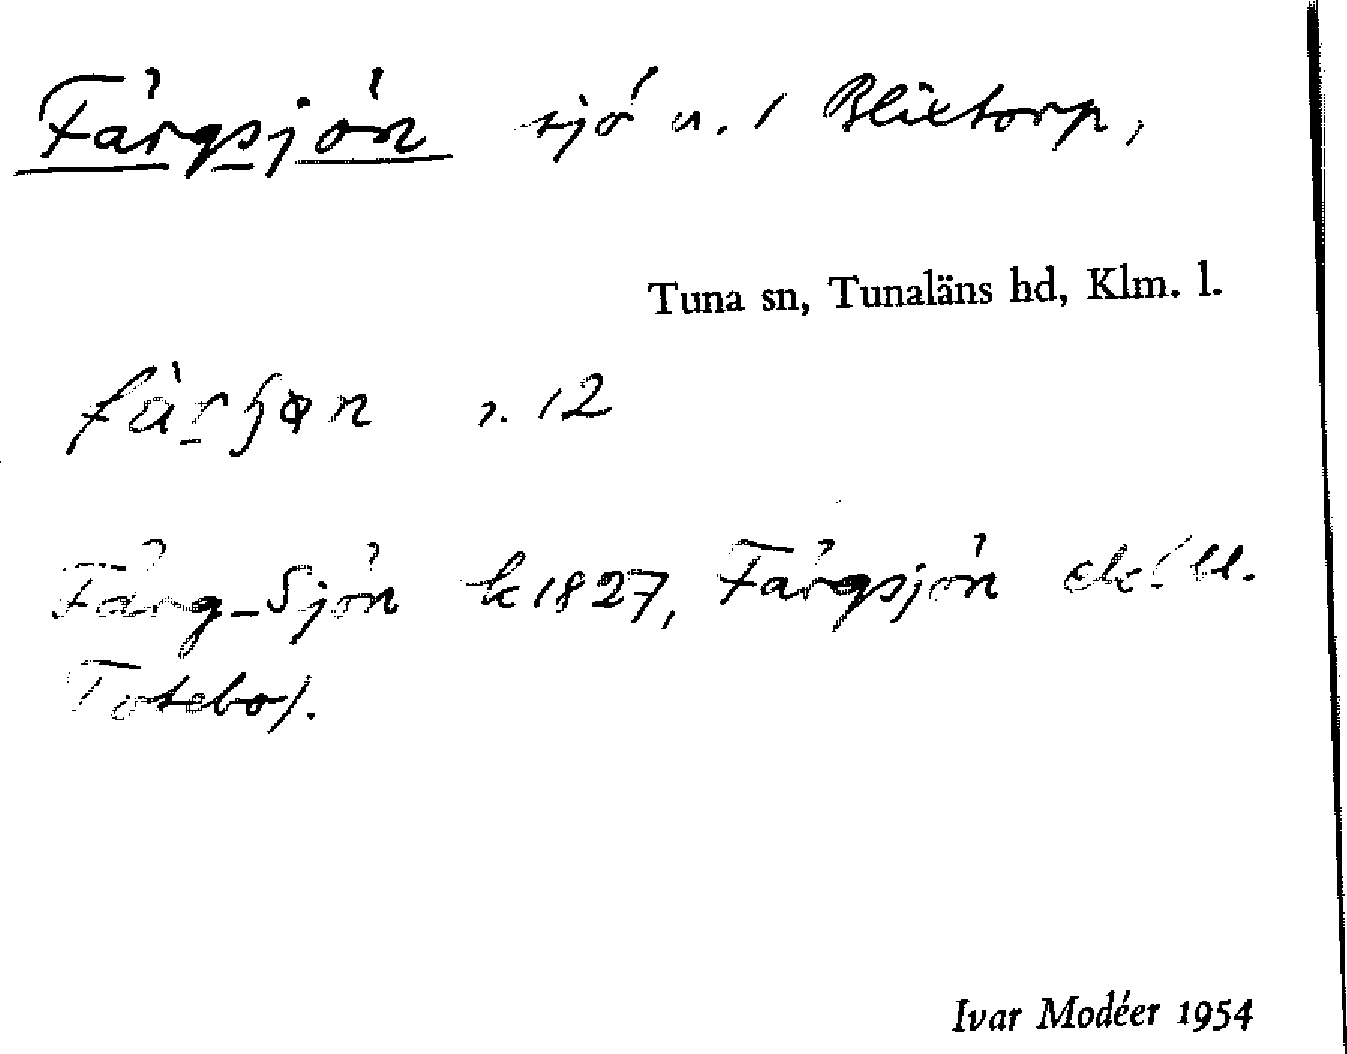 Färgsjön sjö n. 1 Blixtorp,
Tuna sn, Tunaläns hd, Klm. l.
12
Färg-Sjön k 1827, Färgsjön ek. bl.
Totebo).
Ivar Modéer 1954